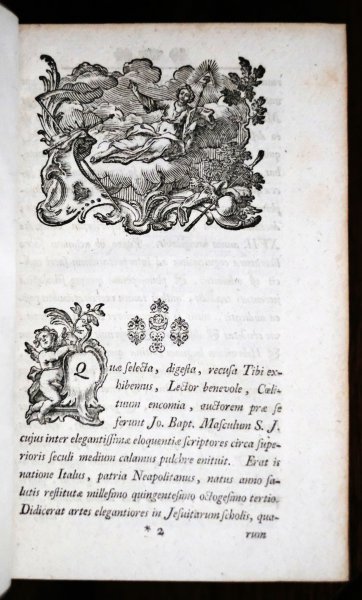 Quæ selecta, digesta, recusa Tibi ex-
hibemus, Lector benevole, Cœli-
tuum encomia, auctorem præ se
ferunt Jo. Bapt. Masculum S. J.
cujus inter elegantissimæ eloquentiæ scriptores circa supe-
rioris seculi medium calamus pulchre enituit. Erat is
natione Italus, patria Neapolitanus, natus anno sa-
lutis restitutæ millesimo quingentesimo octogesimo tertio.
Didicerat artes elegantiores in Jesuitarum scholis, qua-
* 2 rum